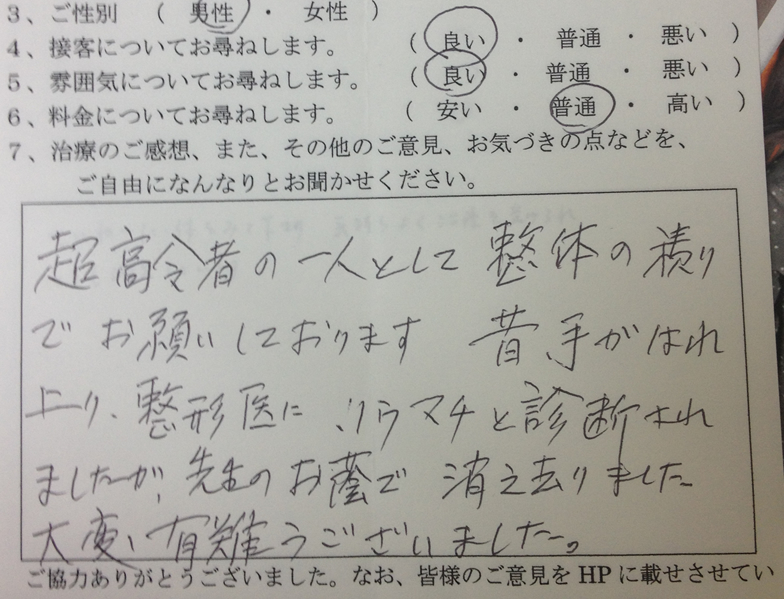 3、ご性別 ( 男性 ・ 女性 )
4、接客についてお尋ねします。 ( 良い ・ 普通 ・ 悪い )
5、雰囲気についてお尋ねします。 ( 良い ・ 普通 ・ 悪い )
6、料金についてお尋ねします。 ( 安い ・ 普通 ・ 高い )
7、治療のご感想、また、その他のご意見、お気づきの点などを、
ご自由になんなりとお聞かせください。
超高令者の一人として 整体の積り
でお願いしております 昔手がはれ
上り、整形医に リウマチと診断され
ましたが、先生のお蔭で 消え去りました
大変 有難うございました。
ご協力ありがとうございました。なお、皆様のご意見を HP に載せさせてい